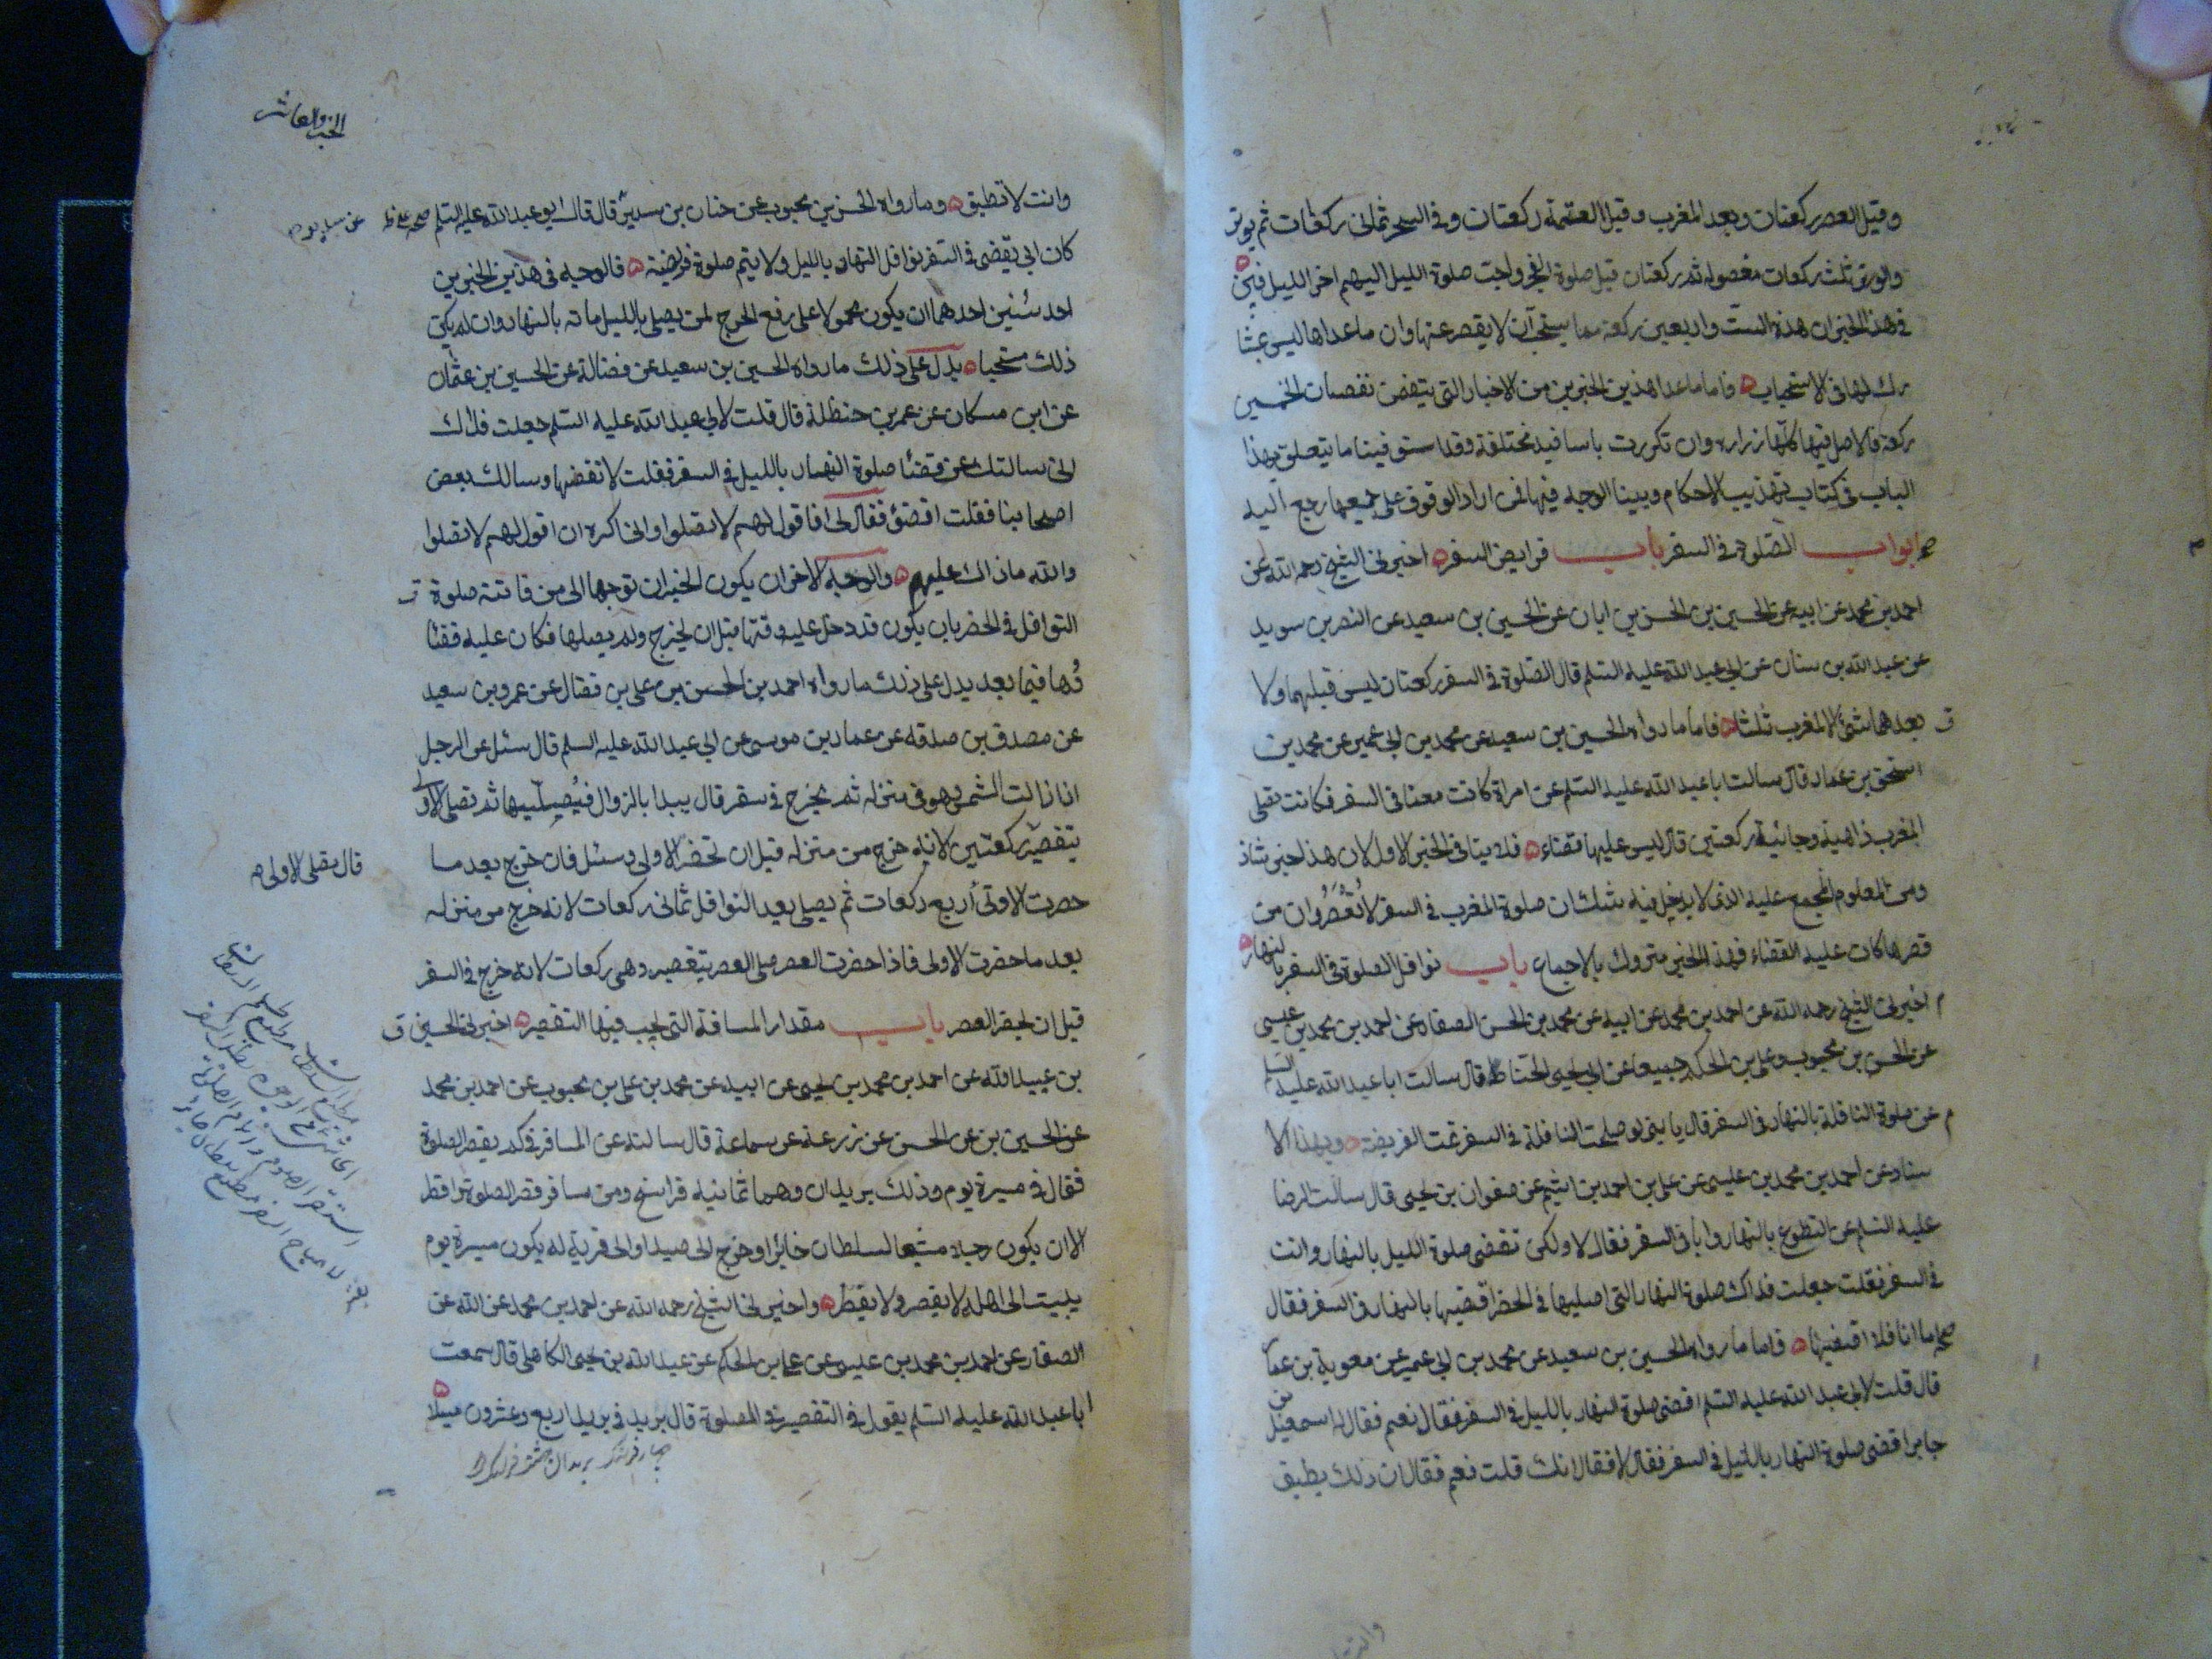 وقبل العصر ركعتان وبعد المغرب وقبل العتمة ركعتان وفى السحر ثمانى ركعات ثم يوتر
والوتر ثلث ركعات مفصوله ثم ركعتان قبل صلوة الفجر واحب صلوة الليل اليهم اخر الليل فبين
فى هذا الخبر ان هذه الست واربعين ركعة مما يستحب ان لا يقصر عنها وان ما عداها ليس
لها فى الاستحباب فاما ما عدا هذين الخبرين من الاخبار التى يتضمن نقصان الخمسين
ركعة فالاصل فيها كلها زراره وان تكررت باسانيد مختلفة وقد استوفينا ما يتعلق بهذا
الباب فى كتاب تهذيب الاحكام وبينا الوجه فيها فمن اراد الوقوف على جميعها رجع اليه
ابواب الصلوة فى السفر باب فرايض السفر اخبرنى الشيخ رحمه الله عن
احمد بن محمد عن ابيه عن الحسين بن الحسن بن ابان عن الحسين بن سعيد عن النضر بن سويد
عن عبد الله بن سنان عن ابى عبد الله عليه السلم قال الصلوة فى السفر ركعتان ليس قبلهما ولا
بعدهما شئ الا المغرب ثلثا فاما ما رواه الحسين بن سعيد عن محمد بن ابى عمير عن محمد بن
اسحق بن عمار قال سالت ابا عبد الله عليه السلم عن امراة كانت معنا فى السفر فكانت تصلى
المغرب ذاهبة وجائية ركعتين قال ليس عليها قضاء فلا ينافى الخبر الاول لان هذا خبر شاذ
ومن المعلوم المجمع عليه الذى لا يدخل فيه شك ان صلوة المغرب فى السفر لا تقصر وان من
قصرها كان عليه القضاء فهذا الخبر متروك بالاجماع باب نوافل الصلوة فى السفر بالنهار
اخبرنى الشيخ رحمه الله عن احمد بن محمد عن ابيه عن محمد بن الحسن الصفار عن احمد بن محمد بن عيسى
عن الحسن بن محبوب وعلى بن الحكم جميعا عن ابى يحيى الحناط قال سالت ابا عبد الله عليه السلم
عن صلوة النافلة بالنهار فى السفر قال يا بنى لو صلحت النافلة فى السفر تمت الفريضة وبهذا الا
سناد عن احمد بن محمد بن عيسى عن على بن احمد بن اشيم عن صفوان بن يحيى قال سالت الرضا
عليه السلم عن التطوع بالنهار وانا فى السفر فقال لا ولكن تقضى صلوة الليل بالنهار وانت
فى السفر فقلت جعلت فداك صلوة النهار التى اصليها فى الحضر اقضيها بالنهار فى السفر فقال
اما انا فلا اقضيها فاما ما رواه الحسين بن سعيد عن محمد بن ابى عمير عن معوية بن عمار
قال قلت لابى عبد الله عليه السلم اقضى صلوة النهار بالليل فى السفر فقال نعم فقال له اسمعيل بن
جابر اقضى صلوة النهار بالليل فى السفر فقال لا فقال انك قلت نعم فقال ان ذلك يطيق
وانت لا تطيق وما رواه الحسن بن محبوب عن حنان بن سدير قال قال ابو عبد الله عليه السلم
كان ابى يقضى فى السفر نوافل النهار بالليل ولا يتم صلوة فريضة فالوجه فى هذين الخبرين
احد شيئين احدهما ان يكون محمولا على رفع الحرج لمن يصلى بالليل ما فاته بالنهار وان لم يكن
ذلك مستحبا يدل على ذلك ما رواه الحسين بن سعيد عن فضالة عن الحسين بن عثمان
عن ابن مسكان عن عمر بن حنظلة قال قلت لابى عبد الله عليه السلم جعلت فداك
انى سالتك عن قضاء صلوة النهار بالليل فى السفر فقلت لا تقضها وسالك بعض
اصحابنا فقلت اقضوا فقال لى افاقول لهم لا تصلوا وانى اكره ان اقول لهم لا تصلوا
والله ما ذاك عليهم والوجه الاخر ان يكون الخبران توجها الى من فاتته صلوة
النوافل فى الحضر بان يكون قد دخل عليه وقتها قبل ان يخرج ولم يصلها فكان عليه قضاؤها
فيما بعد يدل على ذلك ما رواه احمد بن الحسن بن على بن فضال عن عمرو بن سعيد
عن مصدق بن صدقه عن عمار بن موسى عن ابى عبد الله عليه السلم قال سئل عن الرجل
اذا زالت الشمس وهو فى منزله ثم يخرج فى سفر قال يبدا بالزوال فيصليها ثم يصلى الاولى
بتقصير ركعتين لانه خرج من منزله قبل ان تحضر الاولى وسئل فان خرج بعد ما
حضرت الاولى اربع ركعات ثم يصلى بعد النوافل ثمانى ركعات لانه خرج من منزله
قال يصلى الاولى
بعد ما حضرت الاولى فاذا حضرت العصر صلى العصر بتقصير وهى ركعات لانه خرج فى السفر
قبل ان يحضر العصر باب مقدار المسافة التى يجب فيها التقصير اخبرنى الحسين
بن عبيد الله عن احمد بن محمد بن يحيى عن ابيه عن محمد بن على بن محبوب عن احمد بن محمد
عن الحسين عن الحسن عن زرعة عن سماعة قال سالته عن المسافر فى كم يقصر الصلوة
فقال فى مسيرة يوم وذلك بريدان وهما ثمانية فراسخ ومن سافر قصر الصلوة وافطر
الا ان يكون رجلا مشيعا لسلطان جائر او خرج الى صيد او الى قرية له يكون مسيرة يوم
يبيت الى اهله لا يقصر ولا يفطر واخبرنى الشيخ رحمه الله عن احمد بن محمد عن ابيه عن
الصفار عن احمد بن محمد بن عيسى عن على بن الحكم عن عبد الله بن يحيى الكاهلى قال سمعت
ابا عبد الله عليه السلم يقول فى التقصير فى الصلوة قال بريد فى بريد اربع وعشرون ميلا